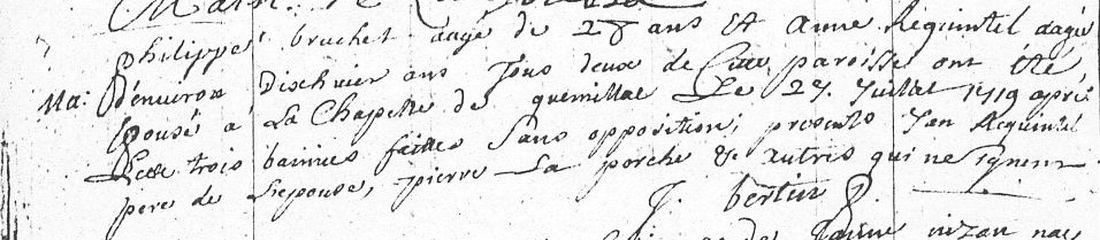 Philippe bruchet aagé de 28 ans Et anne Requintel aagé
Ma: d'enuiron Dixhuict ans Tous deux de Cette paroisse ont été
Epousé a La Chapelle de quemillat Le 27. Juillet 1719 apré
Les trois bannies faittes Sans opposition; presents Jan Requintel
pere de L'epouse, pierre La porche & autres qui ne Signent
J. bertin
nizan